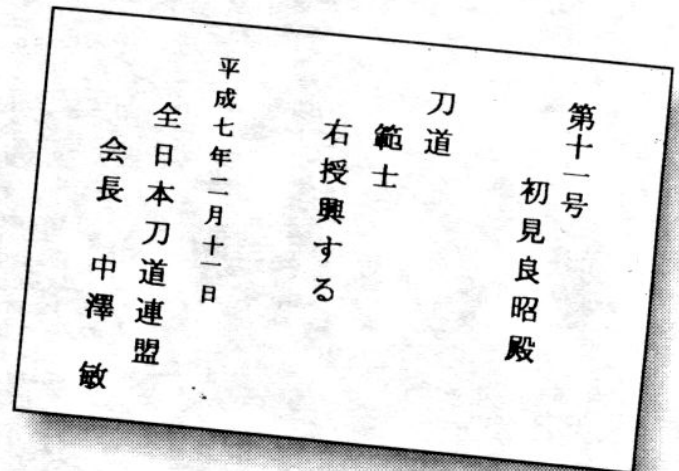 第十一号
初見良昭殿
刀道
範士
右授興する
平成七年二月十一日
全日本刀道連盟
会長 中澤 敏